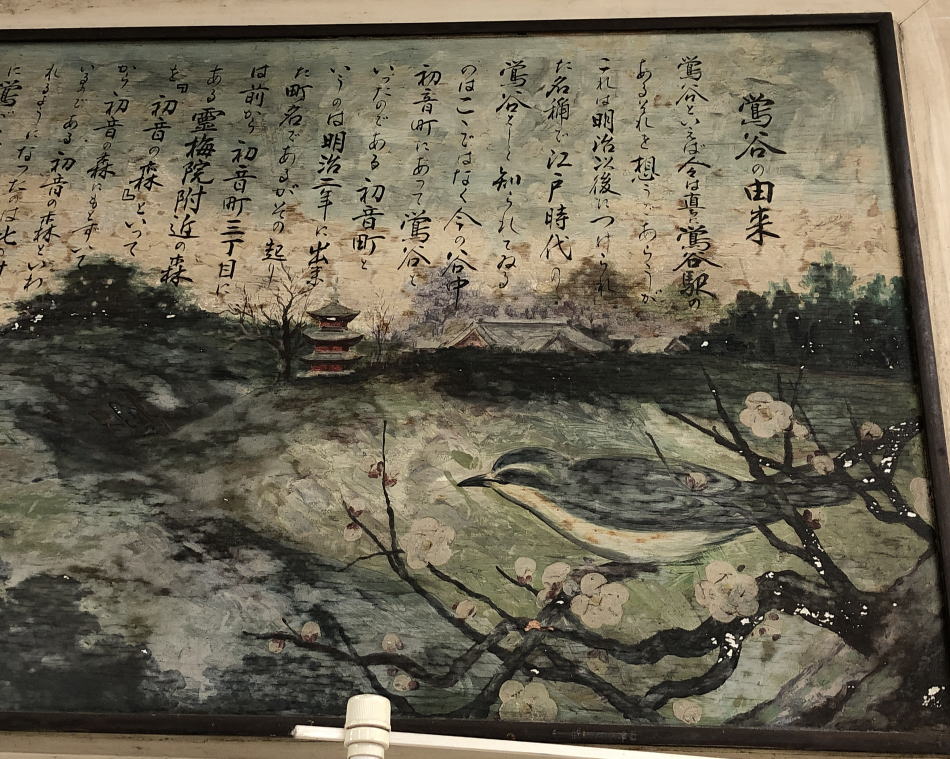 鶯谷の由来
鶯谷といえば今は直ぐ鶯谷駅の
あるそれを想うであろうが
これは明治以後につけられ
た名称で江戸時代の
鶯谷として知られてゐる
のはこゝではなく今の谷中
初音町にあって鶯谷と
いったのである初音町と
いうのは明治二年に出来
た町名であるがその起り
は前から初音町三丁目に
ある霊梅院附近の森
を「初音の森」といって
から初音の森にもとずいて
いるのである初音の森といわ
れるようになったのは
に鶯が